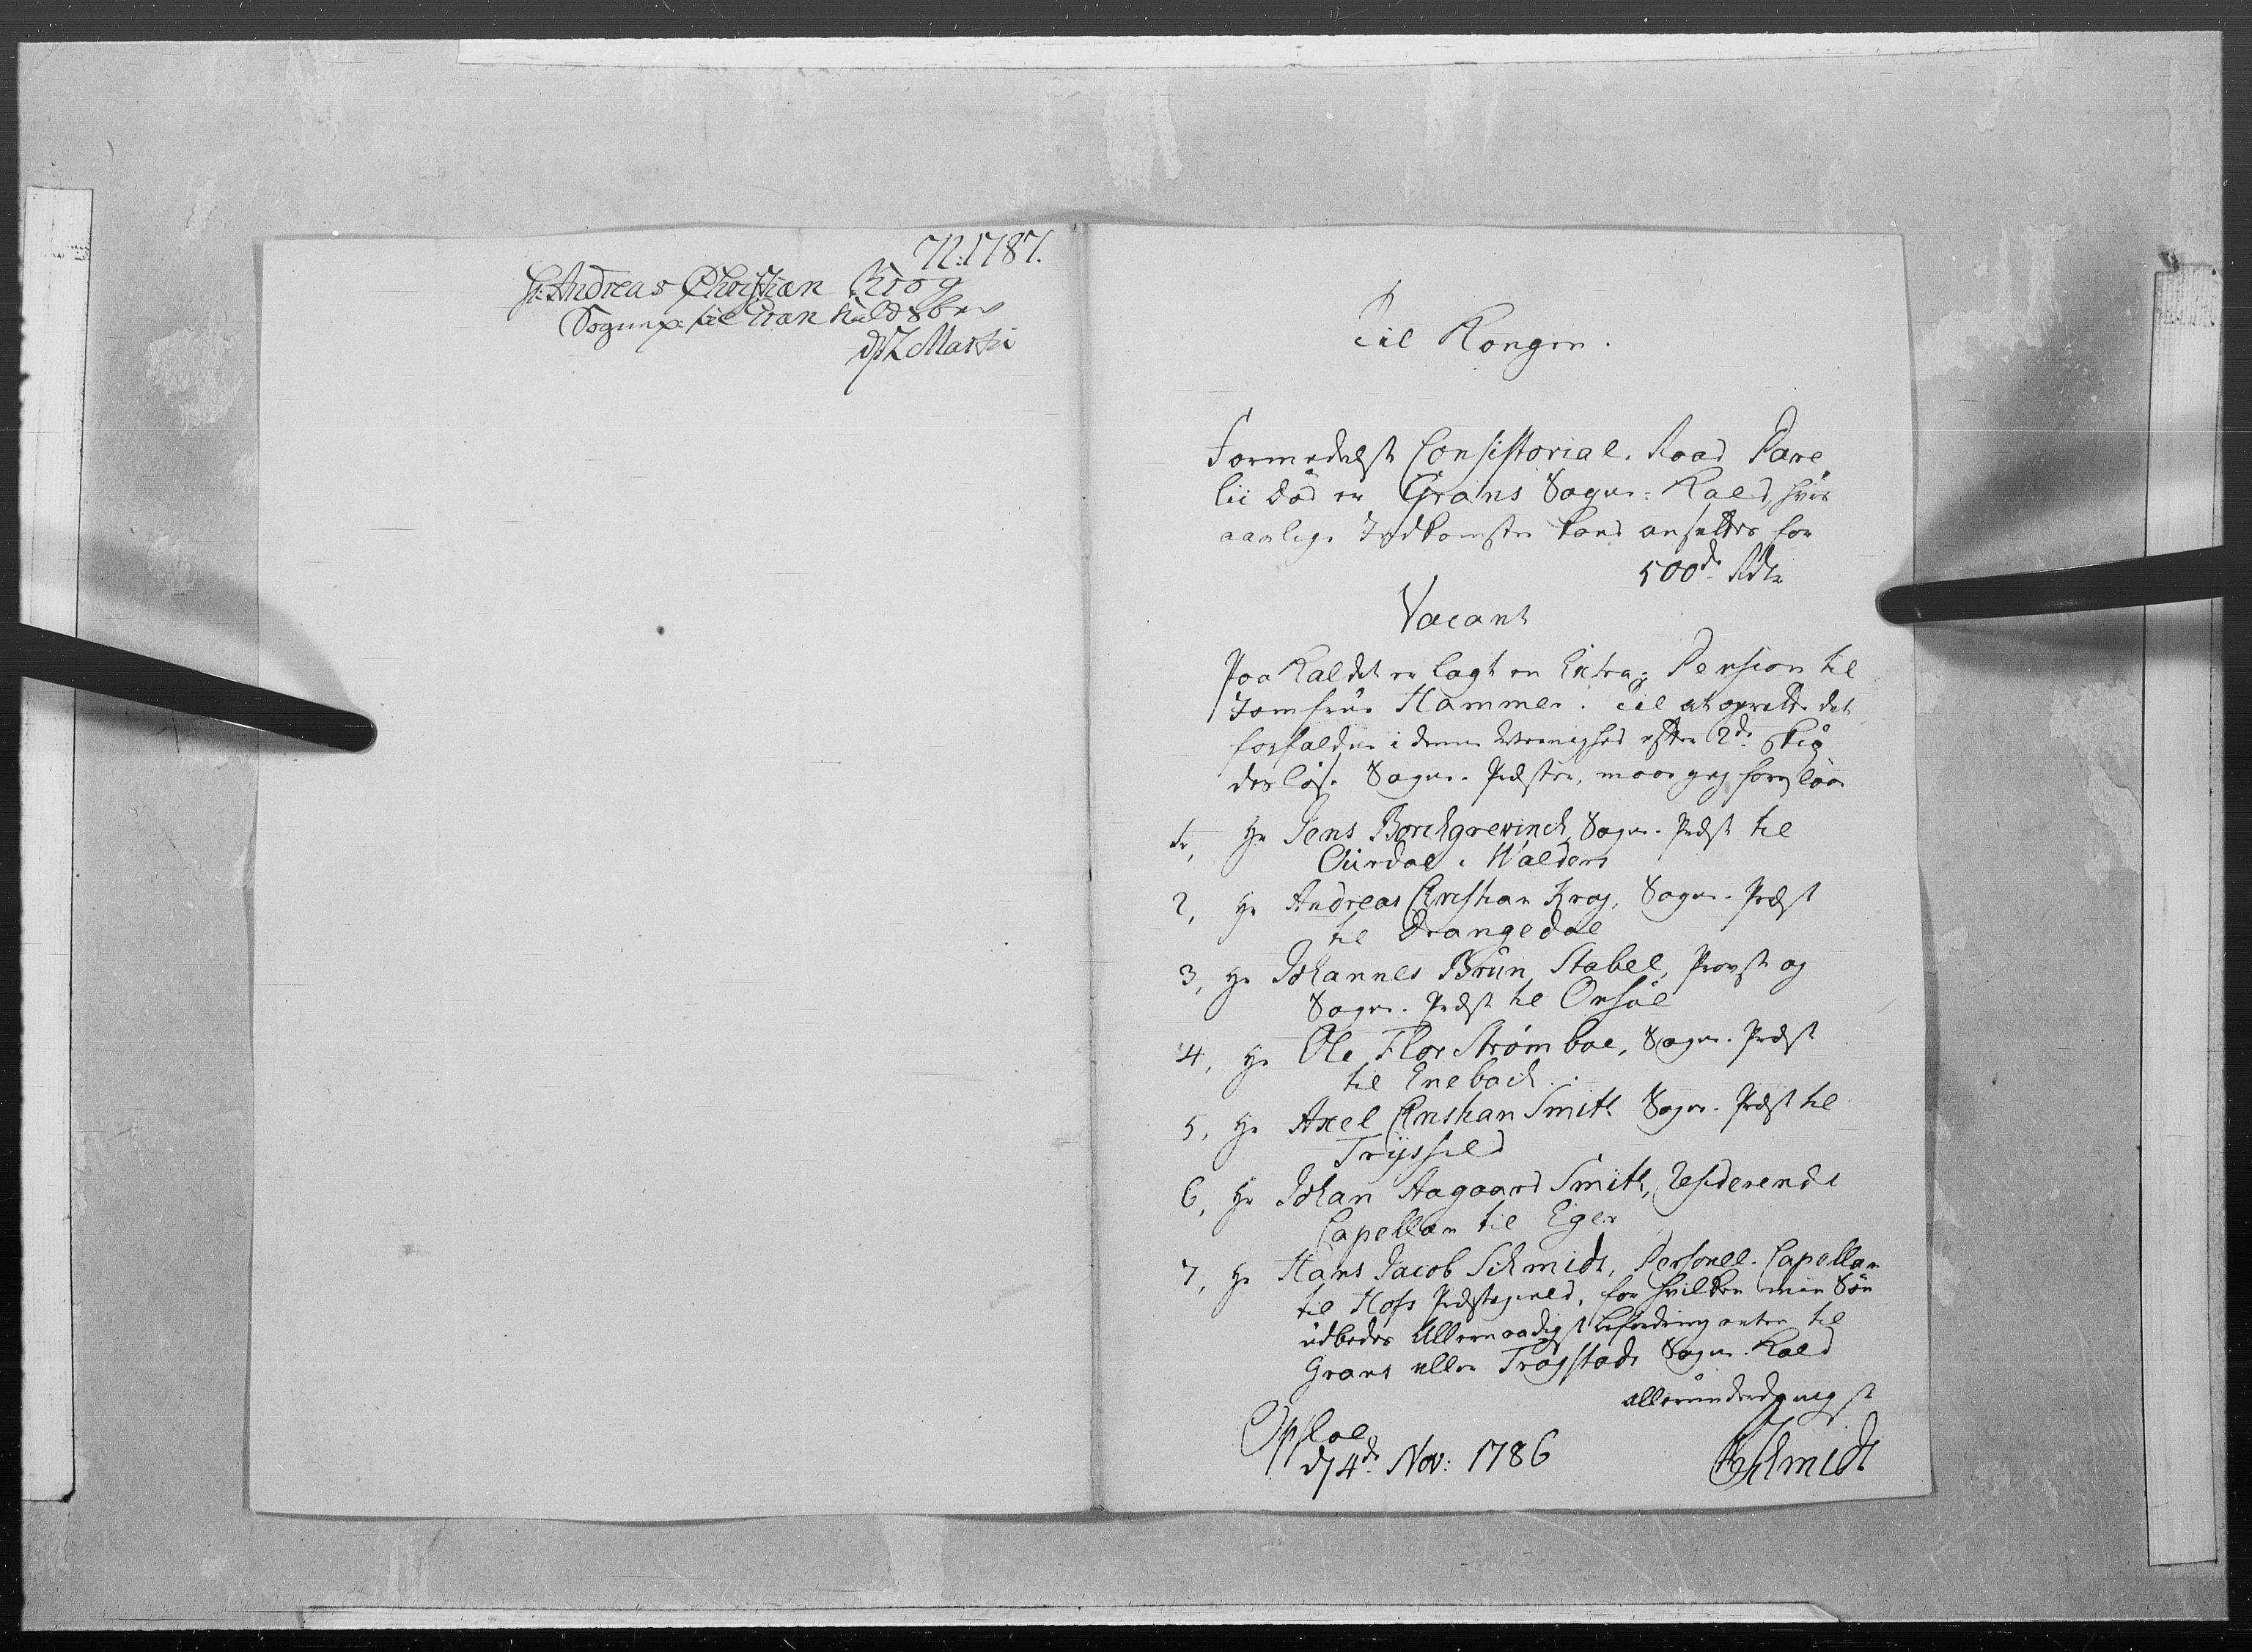 N: 1787.
Hr: Andreas Christian Krog
Sognepr: til Gran kaldsbr
d 2 Martii
Til Kongen.
Formedelst Consistorial-Raad Pave
lii Død er Grans Sogne-Kald, hvis
aarlige Indkomster kand ansættes for
500de Rdlr
Vacant
Paa Kaldet er lagt en Extra-Pension til
Jomfrue Hammer. Til at oprette det
forfaldne i denne Menighed efter 2de
desløse Sogne-Præster, maae jeg foreslaae
1, Hr Jens Borchgrevinck, Sogne-Præst til
Ourdal i Walders
2, Hr Andreas Christian Krog, Sogne-Præst
til Drangedal
3, Hr Johannes Brun Stabel, Provst og
Sogne-Præst til Onsøe
4, Hr Ole Flor Strømboe, Sogne-Præst
til Enebach.
5, Hr Axel Christian Smith Sogne-Præst til
Tryssild
6, Hr Johan Aagaard Smith, Residerende
Capellan til Eger
7, Hr Hans Jacob Schmidt, Personel-Capellan
til Hofs Præstegield, for hvilken min Søn
udbedes Allernaadigst befordring enten til
Grans eller Trøgstads Sogne-Kald
allerunderdanigst
Opsloe
d 4de Nov: 1786
Schmidt